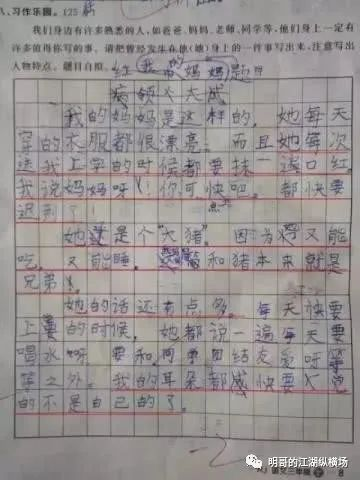 八、习作乐园。(25分)
我们身边有许多熟悉的人,如爸爸、妈妈、老师、同学等,他们身上一定有
许多值得你写的事。请把曾经发生在他(她)身上的一件事写出来,注意写出
人物特点。题目自拟。
我的妈妈
我的妈妈是这样的。她每天
穿的衣服都很漂亮。而且她每次
送我上学的时候都要抹一遍口红。
我说妈妈呀!你可快点吧。都快要
迟到了!
她还是个“大猪”。因为她又能
吃。又能睡。和猪本来就是
兄弟。
她的话还有点多。每天快要
上学的时候。她都说一遍每天要
喝水呀要和同学团结友爱呀等
等之外。我的耳朵都感快要
的不是自己的了。
明哥的江湖纵横场
语文三年级
8